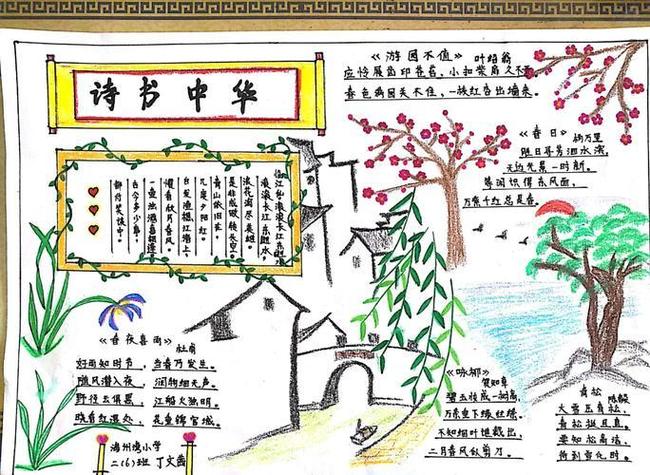 诗书中华
《游园不值》 叶绍翁
应怜屐齿印苍苔，小扣柴扉久不
春色满园关不住，一枝红杏出墙来。
《春日》
胜日寻芳泗水滨，
无边光景一时新。
等闲识得东风面，
万紫千红总是春。
临江仙·滚滚长江东逝水
滚滚长江东逝水，
浪花淘尽英雄。
是非成败转头空。
青山依旧在，
几度夕阳红。
白发渔樵江渚上，
惯看秋月春风。
一壶浊酒喜相逢。
古今多少事，
都付笑谈中。
《春夜喜雨》 杜甫
好雨知时节，当春乃发生。
随风潜入夜，润物细无声。
野径云俱黑，江船火独明。
晓看红湿处，花重锦官城。
《咏柳》 贺知章
碧玉妆成一树高，
万条垂下绿丝绦。
不知细叶谁裁出，
二月春风似剪刀。
青松 陈毅
大雪压青松，
青松挺且直。
要知松高洁，
待到雪化时。
小学
二(6)班 丁文